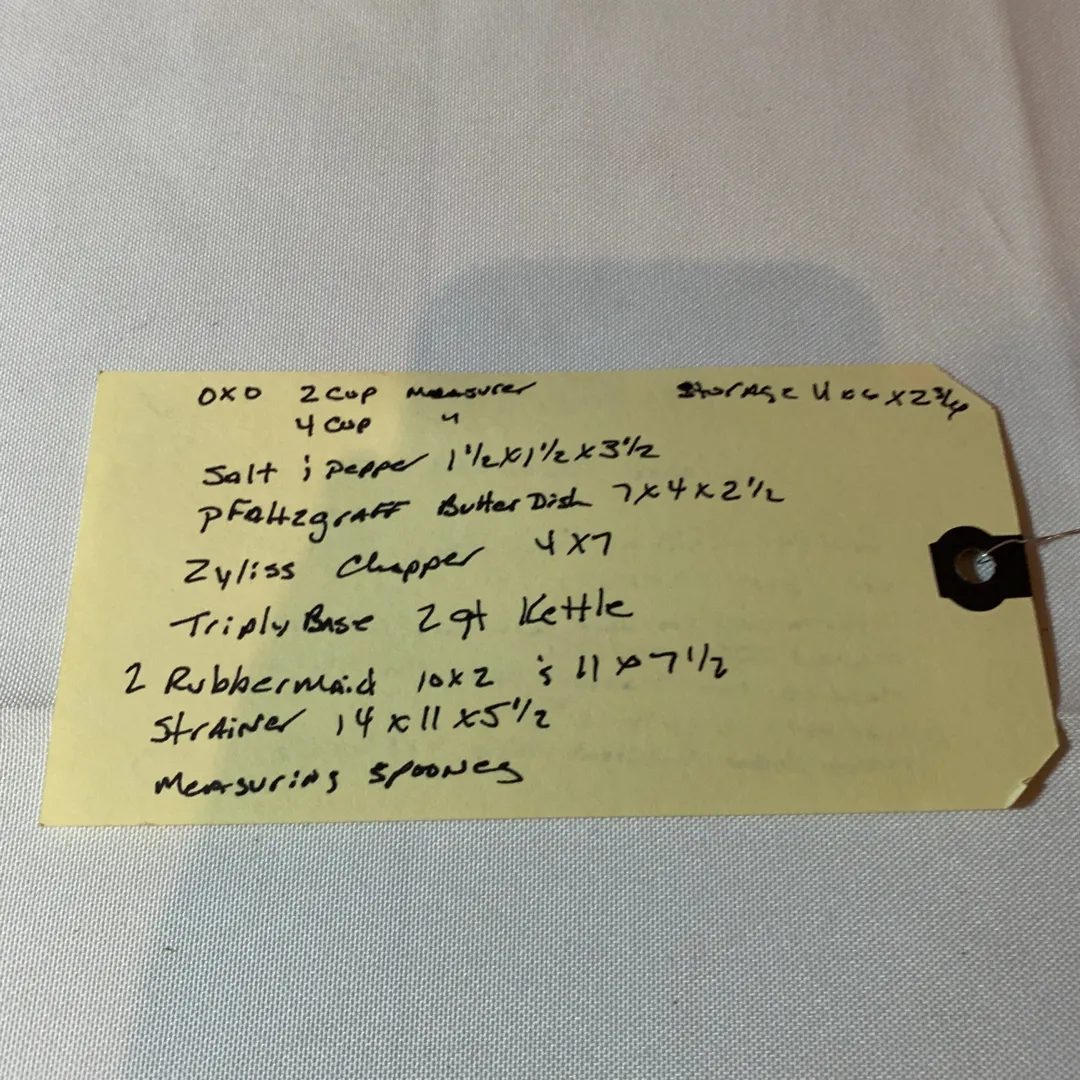 OXO 2 Cup Measurer Storage 4x6x2 3/4
4 Cup "
Salt & Pepper 1 1/2 x 1 1/2 x 3 1/2
PFAltzgrAFF Butter Dish 7x4x2 1/2
Zyliss Chopper 4x7
Triply Base 2 qt Kettle
2 Rubbermaid 10x2 & 11x7 1/2
Strainer 14x11x5 1/2
Measuring Spoones